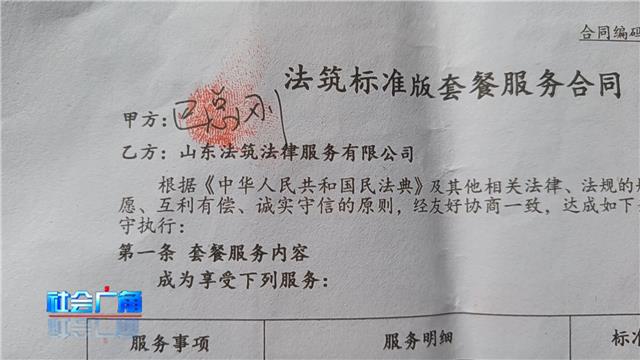 合同编码
法筑标准版套餐服务合同
甲方：
乙方：山东法筑法律服务有限公司
根据《中华人民共和国民法典》及其他相关法律、法规的
愿、互利有偿、诚实守信的原则，经友好协商一致，达成如下
守执行：
第一条 套餐服务内容
成为享受下列服务：
社会广角
服务事项 服务明细 标准